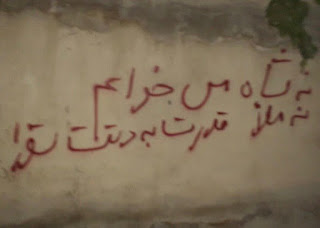 نه شاه می خواهم
نه ملا قدرت به دست شورا